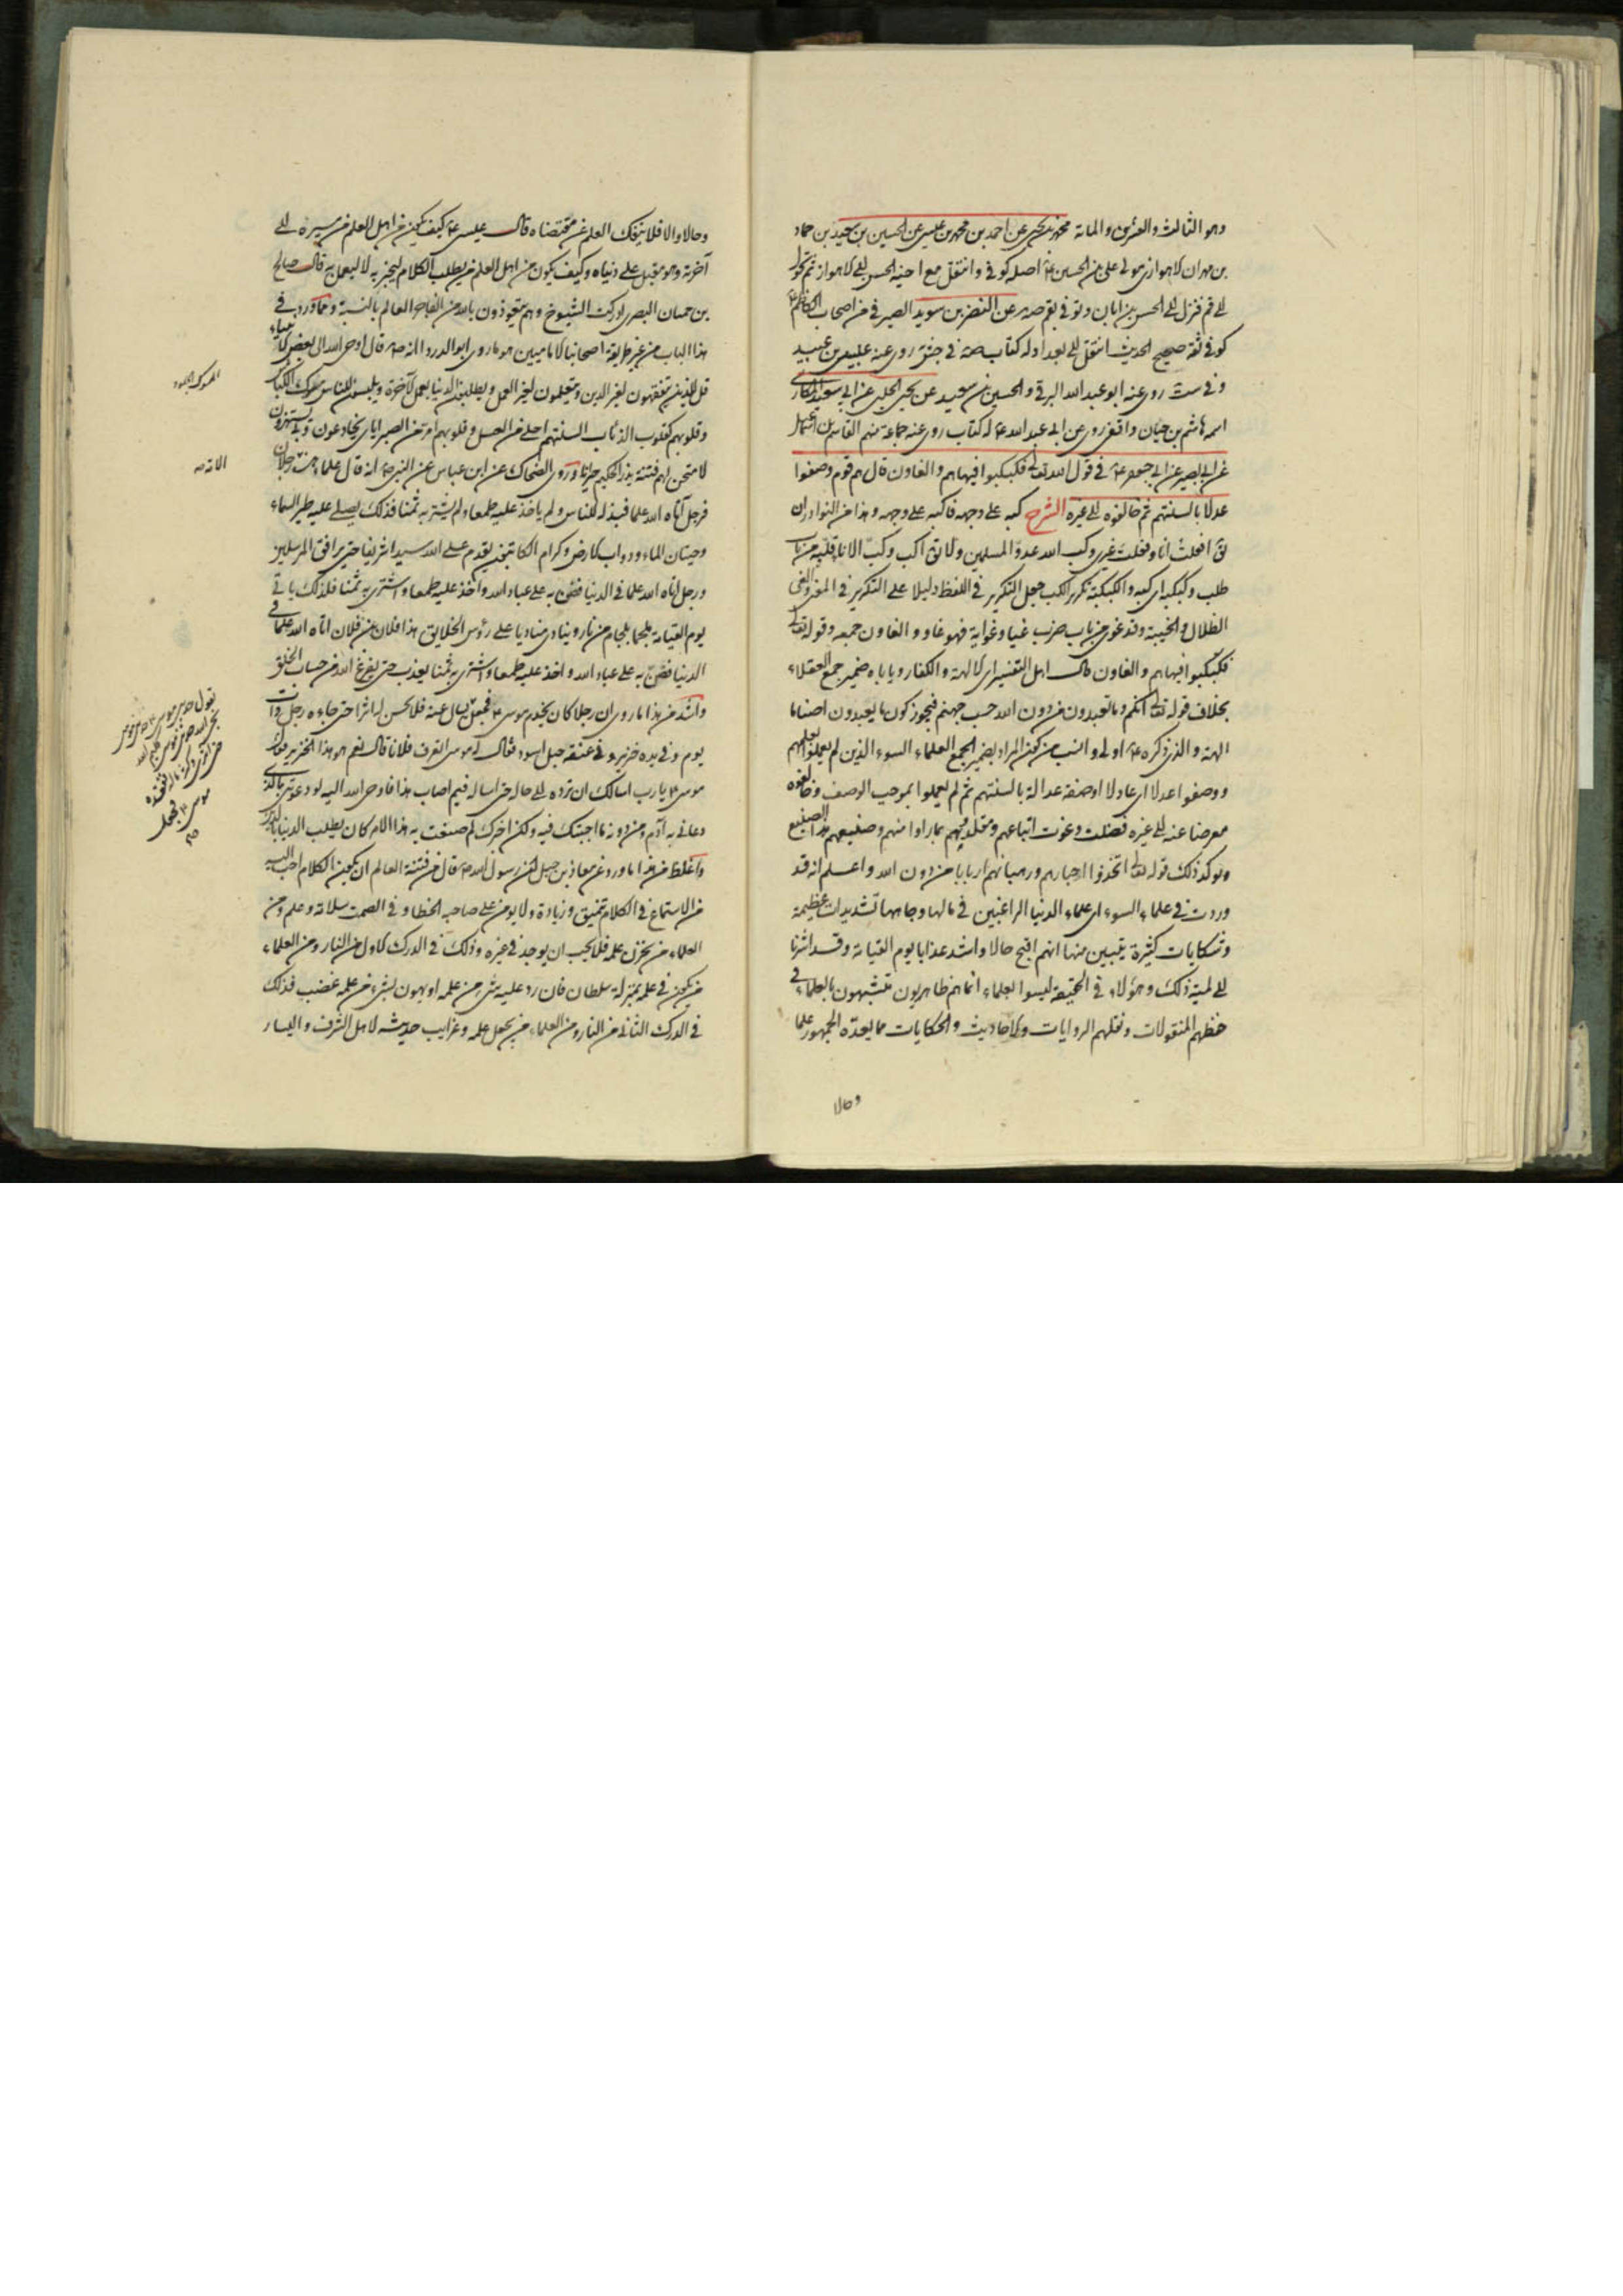 وهو الثالث والعشرون والمائة محمد بن يحيى عن احمد بن محمد بن عيسى عن الحسين بن سعيد بن حماد
بن مهران الاهوازى مولى على بن الحسين ع اصله كوفى وانتقل مع اخيه الحسن الى الاهواز ثم تحول
الى قم فنزل الى الحسن بن ابان وتوفى بقم صه عن النضر بن سويد الصيرفى من اصحاب الكاظم ع
كوفى ثقة صحيح الحديث انتقل الى بغداد له كتاب صه فى جش روى عنه محمد بن عيسى بن عبيد
وفى ست روى عنه ابو عبد الله البرقى والحسين بن سعيد عن يحيى الحلبى عن ابى سعيد المكارى
اسمه هاشم بن حيان واقفى روى عن ابى عبد الله ع له كتاب روى عنه جماعة منهم القاسم بن اسمعيل
عن ابى بصير عن ابى جعفر ع فى قول الله تعالى فكبكبوا فيها هم والغاون قال هم قوم وصفوا
عدلا بالسنتهم ثم خالفوه الى غيره الشرح كبه على وجهه فاكبه على وجهه وهذا من النوادر ان
يق افعلت انا وفعلت غيرى وكب الله عدو المسلمين ولا يق اكب وكب الاناء قلبه من باب
طلب وكبكبه اى كبه والكبكبة تكرير الكب جعل التكرير فى اللفظ دليلا على التكرير فى المعنى والغى
الضلال والخيبة وقد غوى من باب ضرب غيا وغواية فهو غاو والغاون جمعه وقوله تعالى
فكبكبوا فيها هم والغاون قال اهل التفسير اى الالهة والكفار ويا باه ضمير جمع العقلاء
بخلاف قوله تعالى انكم وما تعبدون من دون الله حسب جهنم فيجوز كون ما يعبدون اصناما
الهة والذى ذكره ع اولى وانسب من كون المراد بضمير الجمع العلماء السوء الذين لم يعملوا بعلمهم
ووصفوا عدلا اى عادلا اوصفة عدالة بالسنتهم ثم لم يعملوا بموجب الوصف وخالفوه
معرضا عنه الى غيره فضلت وغوت اتباعهم ومقلديهم بما راوا منهم وصنيعهم هذا الصنيع
ويوكد ذلك قوله تعالى اتخذوا احبارهم ورهبانهم اربابا من دون الله واعلم انه قد
وردت فى علماء السوء اى علماء الدنيا الراغبين فى مالها وجاهها تشديدات عظيمة
وشكايات كثيرة يتبين منها انهم اقبح حالا واشد عذابا يوم القيامة وقد اشرنا
الى لمية ذلك وهؤلاء فى الحقيقة ليسوا بعلماء انما هم ظاهريون متشبهون بالعلماء فى
حفظهم المنقولات ونقلهم الروايات والاحاديث والحكايات مما يعده الجمهور علما
وحالا
وحالا والا فلا ينفك العلم عن مقتضاه قال عيسى ع كيف يكون من اهل العلم من مسيره الى
آخرته وهو مقبل على دنياه وكيف يكون من اهل العلم من يطلب الكلام ليخبر به لا ليعمل به قال صالح
بن حسان البصرى ادركت الشيوخ وهم يتعوذون بالله من الفاجر العالم بالسنة ومما ورد فى
هذا الباب من غير طريقة اصحابنا الاماميين هو ما روى ابو الدرداء انه ص قال اوحى الله الى بعض الانبياء
قل للذين يتفقهون لغير الدين ويتعلمون لغير العمل ويطلبون الدنيا بعمل الآخرة ويلبسون للناس مسوك الكباش
وقلوبهم كقلوب الذئاب السنتهم احلى من العسل وقلوبهم امر من الصبر اياى يخادعون وبى يستهزؤن
لامتحن لهم فتنة يذر الحكيم حيرانا وروى الضحاك عن ابن عباس عن النبى ص انه قال علماء هذه رجلان
فرجل آتاه الله علما فبذله للناس ولم ياخذ عليه طمعا ولم يشتر به ثمنا فذلك يصلى عليه طير السماء
وحيتان الماء ودواب الارض وكرام الكاتبين يقدم على الله سيدا شريفا حتى يرافق المرسلين
ورجل اتاه الله علما فى الدنيا فضن به على عباد الله واخذ عليه طمعا واشترى به ثمنا فذلك ياتى
يوم القيامة ملجما بلجام من نار وينادى مناديا على رؤس الخلايق هذا فلان بن فلان اتاه الله علما فى
الدنيا فضن به على عباد الله واخذ عليه طمعا واشترى به ثمنا يعذب حتى يفرغ الله من حساب الخلق
واشد من هذا ما روى ان رجلا كان يخدم موسى ع فجعل يسال عنه فلا يحس له اثرا حتى جاءه رجل ذات
يوم وفى يده خنزير وفى عنقه حبل اسود فقال له موسى اتعرف فلانا قال نعم هو هذا الخنزير فقال
موسى ع يا رب اسالك ان ترده الى حاله حتى اساله فيم اصاب هذا فاوحى الله اليه لو دعوتنى بالذى
دعانى به آدم ومن دونه ما اجبتك فيه ولكن اخبرك لم صنعت به هذا لانه كان يطلب الدنيا بالدين
واغلظ من هذا ما ورد عن معاذ بن جبل عن رسول الله ص قال من فتنة العالم ان يكون الكلام احب اليه
من الاستماع فى الكلام تنميق وزيادة ولا يومن على صاحبه الخطا وفى الصمت سلامة وعلم ومن
العلماء من يخزن علمه فلا يحب ان يوجد فى غيره وذلك فى الدرك الاول من النار ومن العلماء
من يكون فى علمه بمنزلة سلطان فان رد عليه شىء من علمه او يهون بشىء من علمه غضب فذلك
فى الدرك الثانى من النار ومن العلماء من يجعل علمه وغرايب حديثه لاهل الشرف واليسار
المسوك الجلود
الامة صه